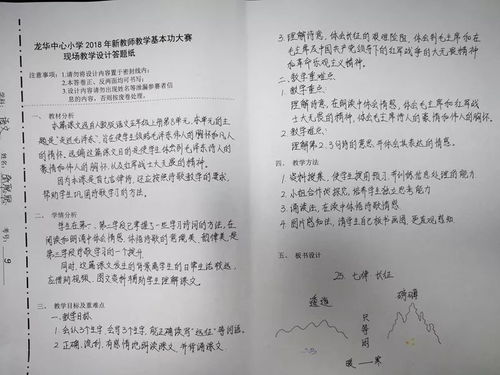 龙华中心小学 2018 年新教师教学基本功大赛
现场教学设计答题纸
注意事项：1.请勿将设计内容置于密封线内；
2.本答卷正、反两面均可书写；
3.设计内容请勿出现姓名等泄漏参赛者信
息的内容，否则按废卷处理。
一、 教材分析
本篇课文选自人教版语文五年级上册第8单元，本单元的主
题是“走近毛泽东”，旨在使学生领略毛泽东伟人的情怀和凡人
的情怀。选编这篇课文目的是使学生体会到毛泽东诗人的
豪情和伟人的情怀，以及红军战士大无畏的精神。
因为本课是首七言律诗，还应按照诗歌教学的要求，
帮助学生巩固诗歌学习的方法。
二、 学情分析
学生在第一、第二学段已掌握了一些学习诗词的方法，在
阅读和朗诵中体会情感，体悟诗歌的意境美、韵律美是
第三学段诗歌学习的一个提升
同时，这篇课文发生的背景离学生的日常生活较远，
应借助视频、图文资料辅助学生理解课文。
三、 教学目标及重难点
一、教学目标
1. 会认3个生字，会写3个生字，能正确读写“远征”等词语。
2. 正确、流利、有感情地朗读课文，并背诵课文。
3. 理解诗意，体会长征的艰难险阻，体会到毛主席和在
毛主席及中国共产党领导下的红军战争的大无畏精神
和革命乐观主义精神。
二、教学重难点：
1. 教学重点：
理解诗意，在朗读中体会情感，体会出毛主席和红军战
士大无畏的精神，体会毛主席诗人的豪情和伟人的情怀。
2. 教学难点：
理解第2、3句诗的意思，并体会其表达的情感。
四、 教学方法
2. 小组合作快探究，培养学生独立思考能力
3. 诵读法，在读中体悟诗歌情感
4. 图片感知法，请学生自己板书画图，更直观感知
五、 板书设计
25. 七律 长征
逶迤
磅礴
只等闲
暖——寒
学科：语文
姓名：
考号：9